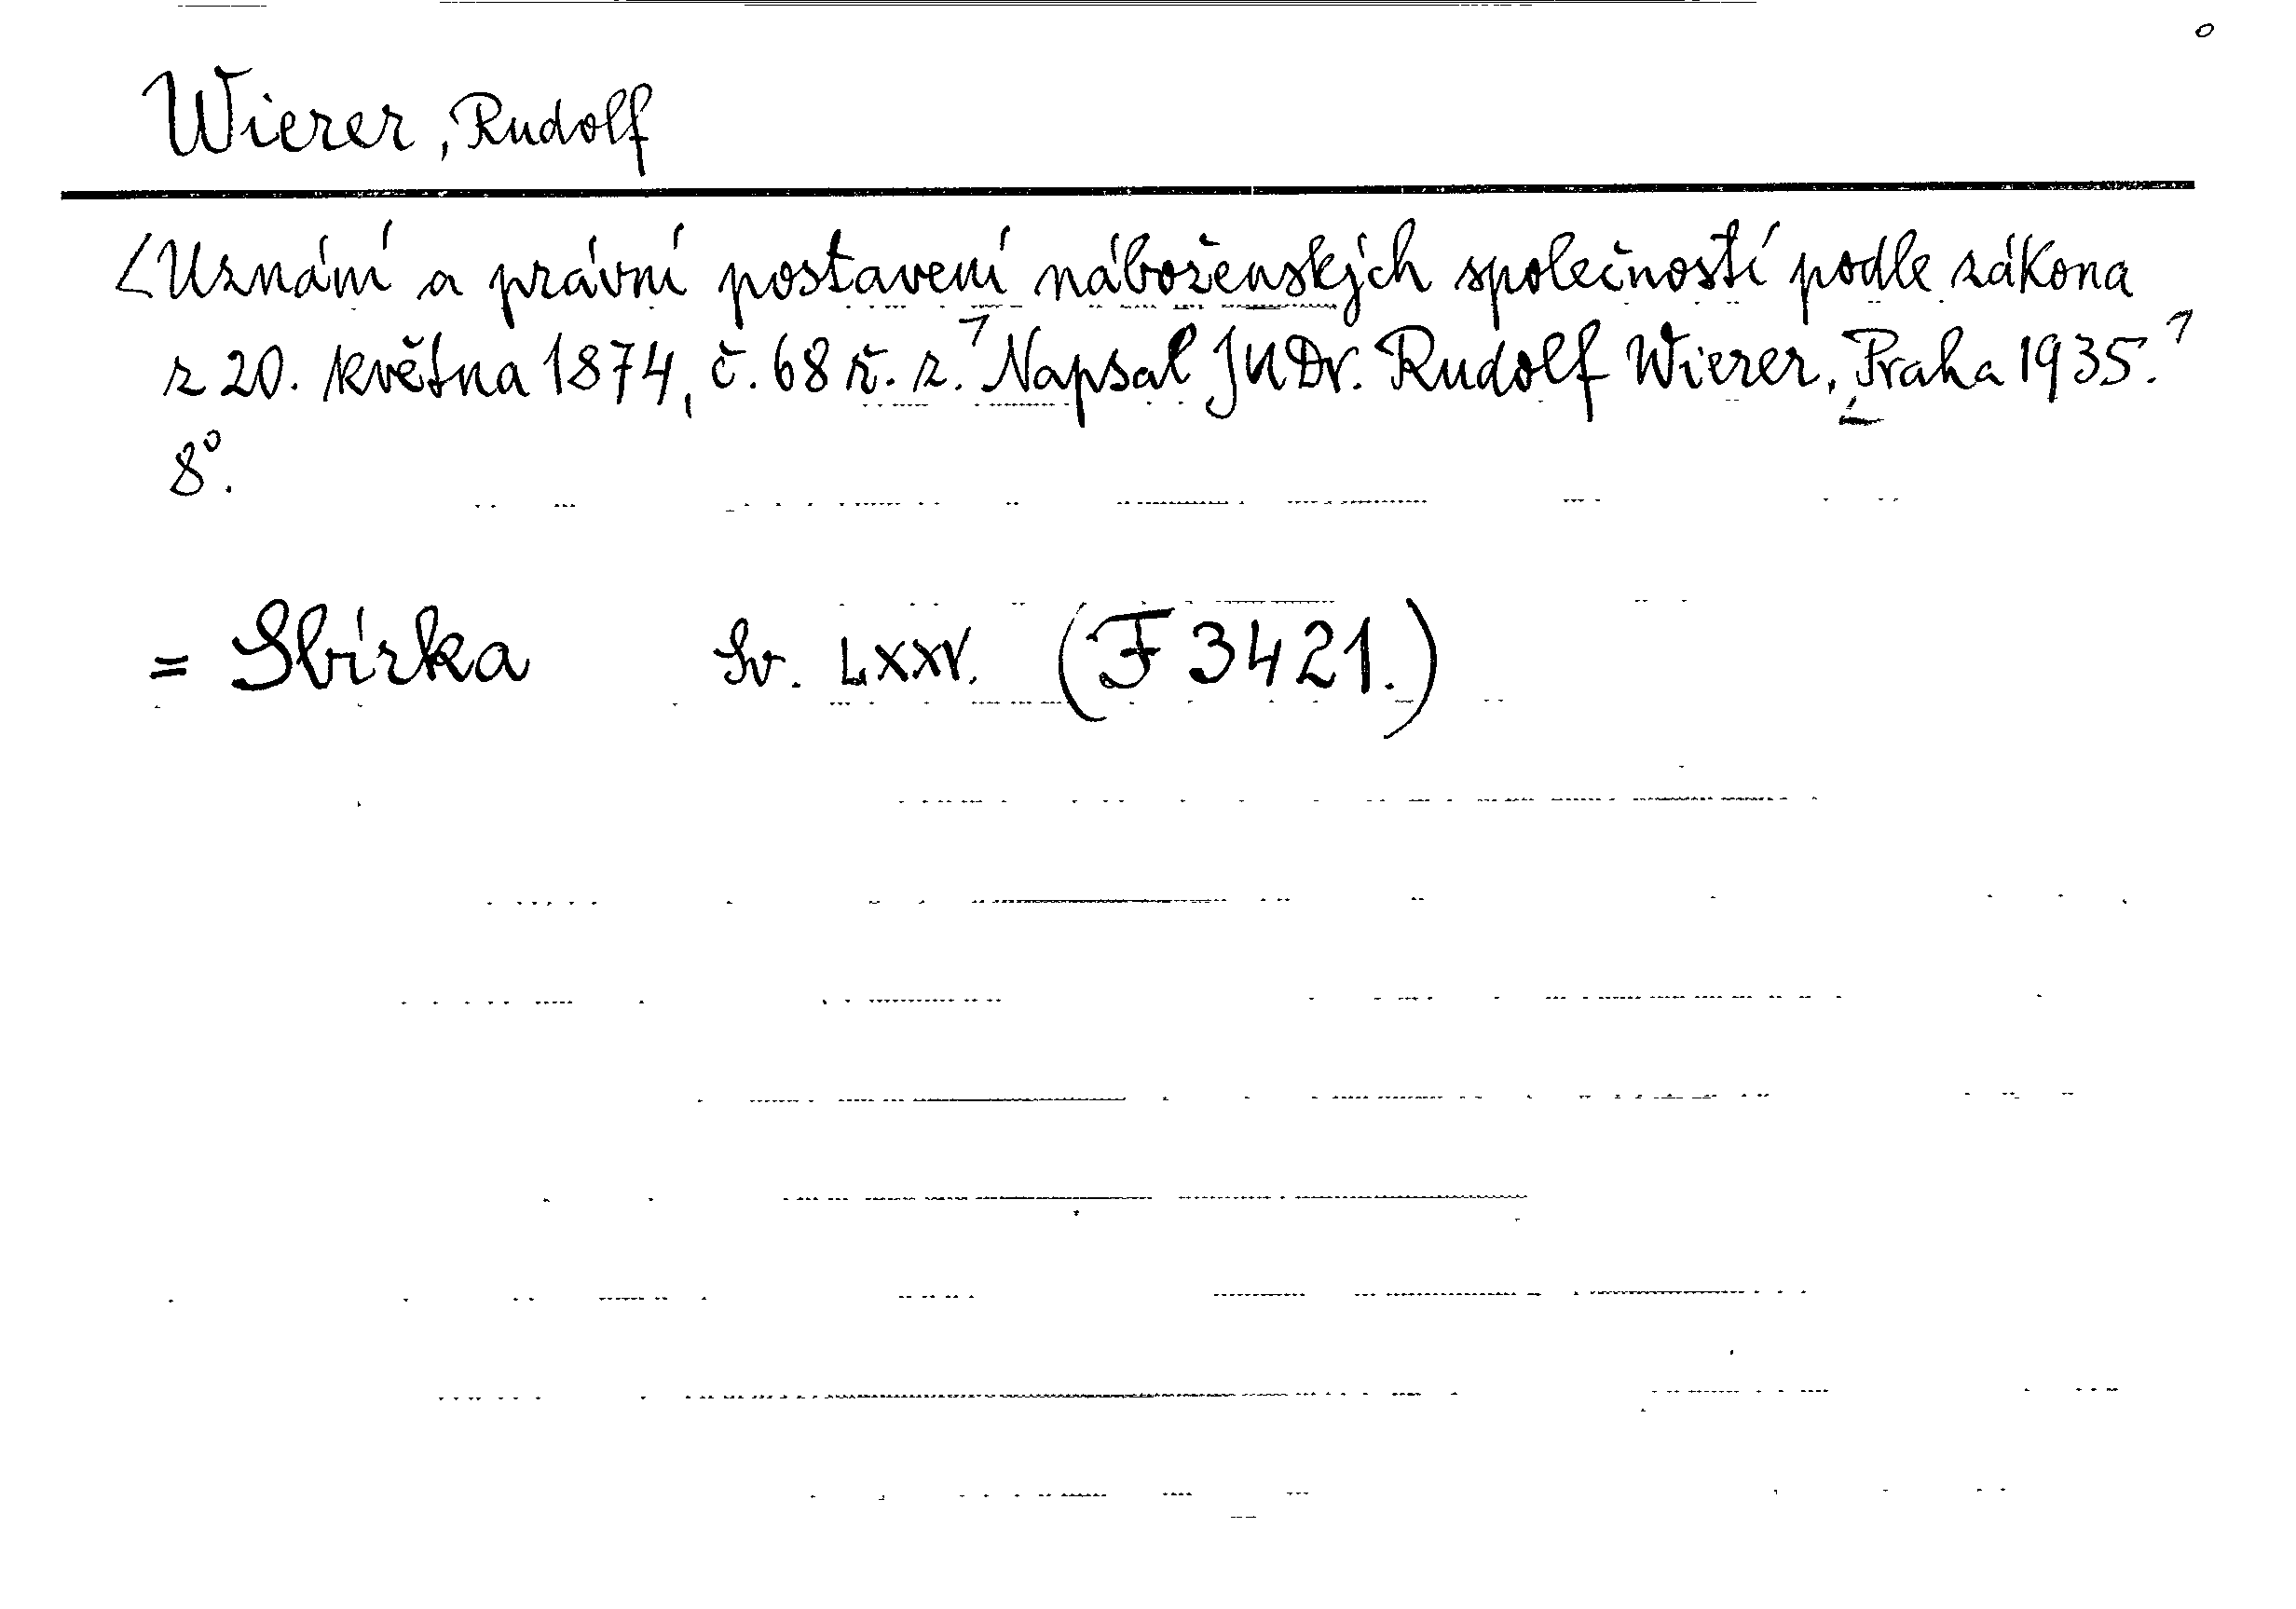 Wierer, Rudolf
<Uznání a právní postavení náboženských společností podle zákona
z 20. května 1874, č. 68 ř. z.> Napsal JUDr. Rudolf Wierer, <Praha 1935.>
8°.
= Sbírka Sv. LXXV. (F 3421.)